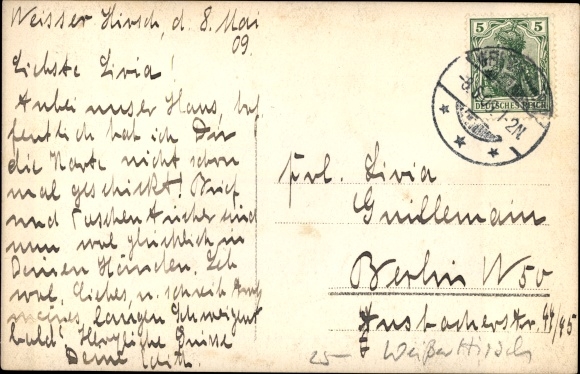 Weisser Hirsch, d. 8. Mai
09.
Liebste Livia!
Anbei unser Haus, hof
fentlich hab ich Dir
die Karte nicht schon
mal geschickt! Brief
und Taschentücher sind
nun wol glücklich in
Deinen Händen. Leb
wol, liebes, u. schreib trotz
meines langen Schweigens
bald! Herzliche Grüsse
Deine Edith.
5 5
DEUTSCHES REICH
1-2N
Frl. Livia
Guillemain
Berlin W 50
Ansbacherstr. 44/45
25- Weißer Hirsch